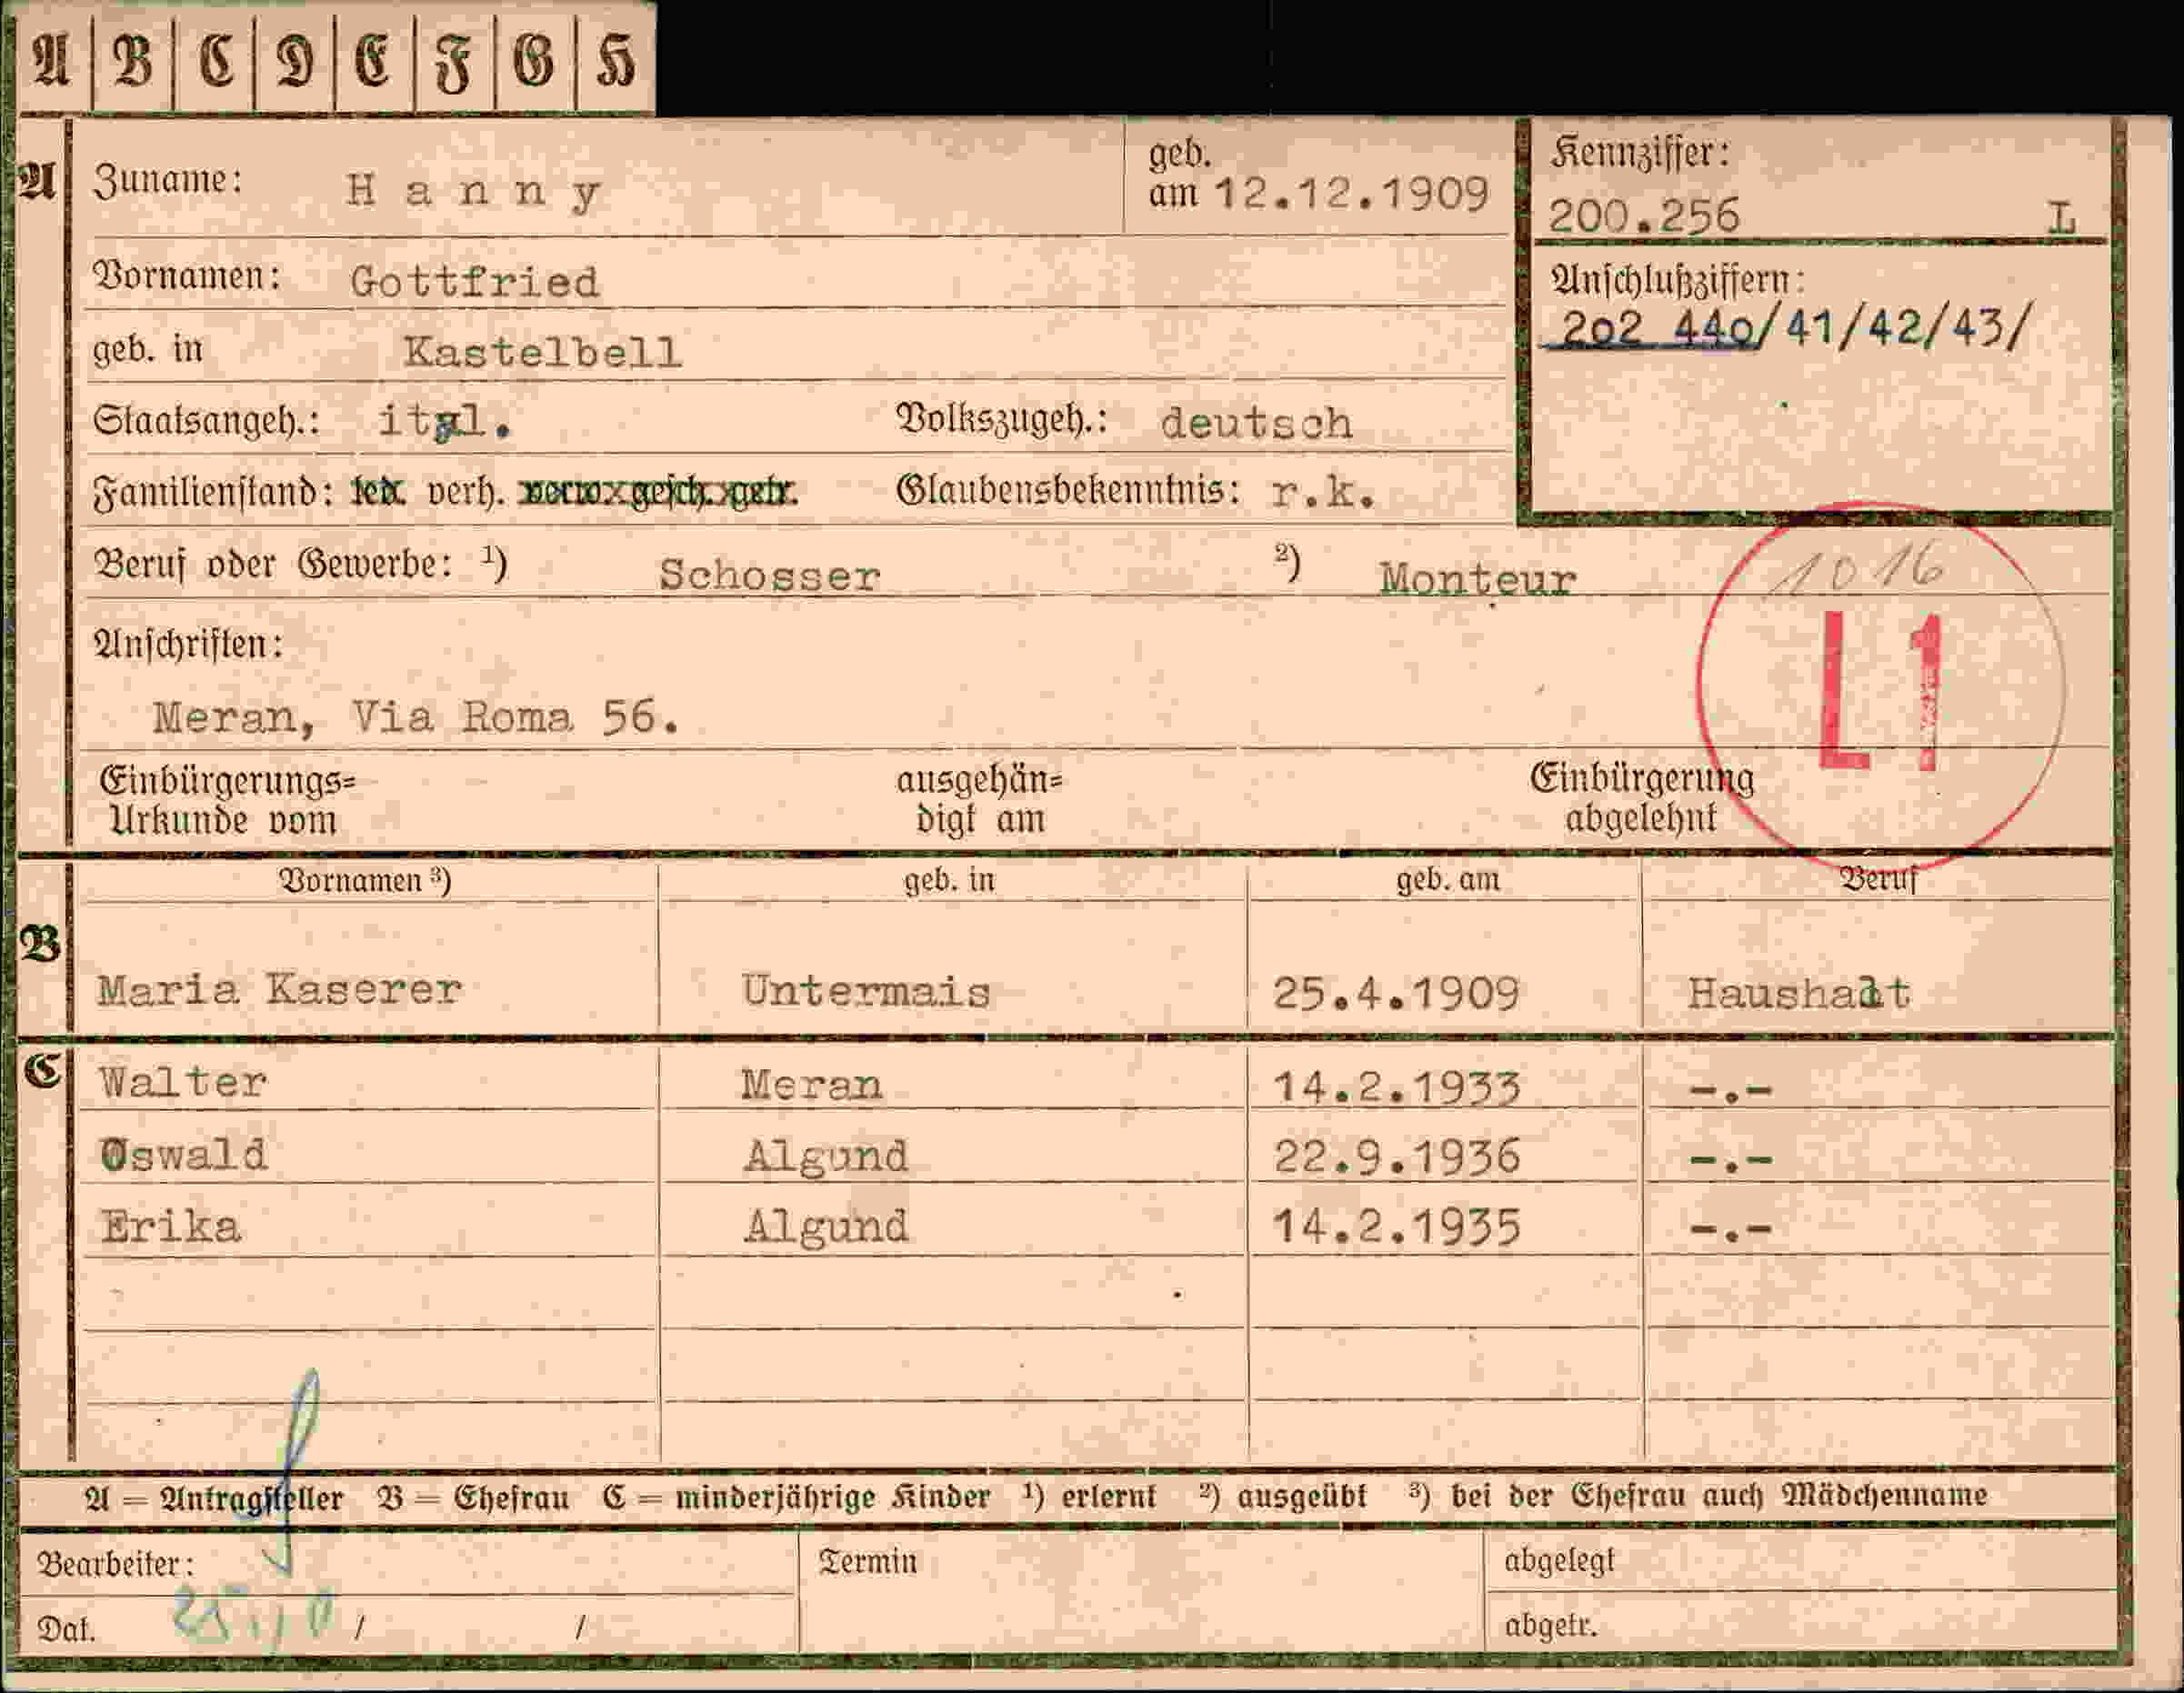 A B C D E F G H
A Zuname: Hanny geb. am 12.12.1909 Kennziffer: 200.256 L
Vornamen: Gottfried Anschlußziffern: 202 440/41/42/43/
geb. in Kastelbell
Staatsangeh.: ital. Volkszugeh.: deutsch
Familienstand: led. verh. verw. gesch. getr. Glaubensbekenntnis: r.k.
Beruf oder Gewerbe: ¹) Schosser ²) Monteur 1016
Anschriften: L1
Meran, Via Roma 56.
Einbürgerungs= ausgehän= Einbürgerung
Urkunde vom digt am abgelehnt
Vornamen ³) geb. in geb. am Beruf
B Maria Kaserer Untermais 25.4.1909 Haushalt
C Walter Meran 14.2.1933 -.-
Oswald Algund 22.9.1936 -.-
Erika Algund 14.2.1935 -.-
A = Antragsteller B = Ehefrau C = minderjährige Kinder ¹) erlernt ²) ausgeübt ³) bei der Ehefrau auch Mädchenname
Bearbeiter: Termin abgelegt
Dat. / / abgetr.